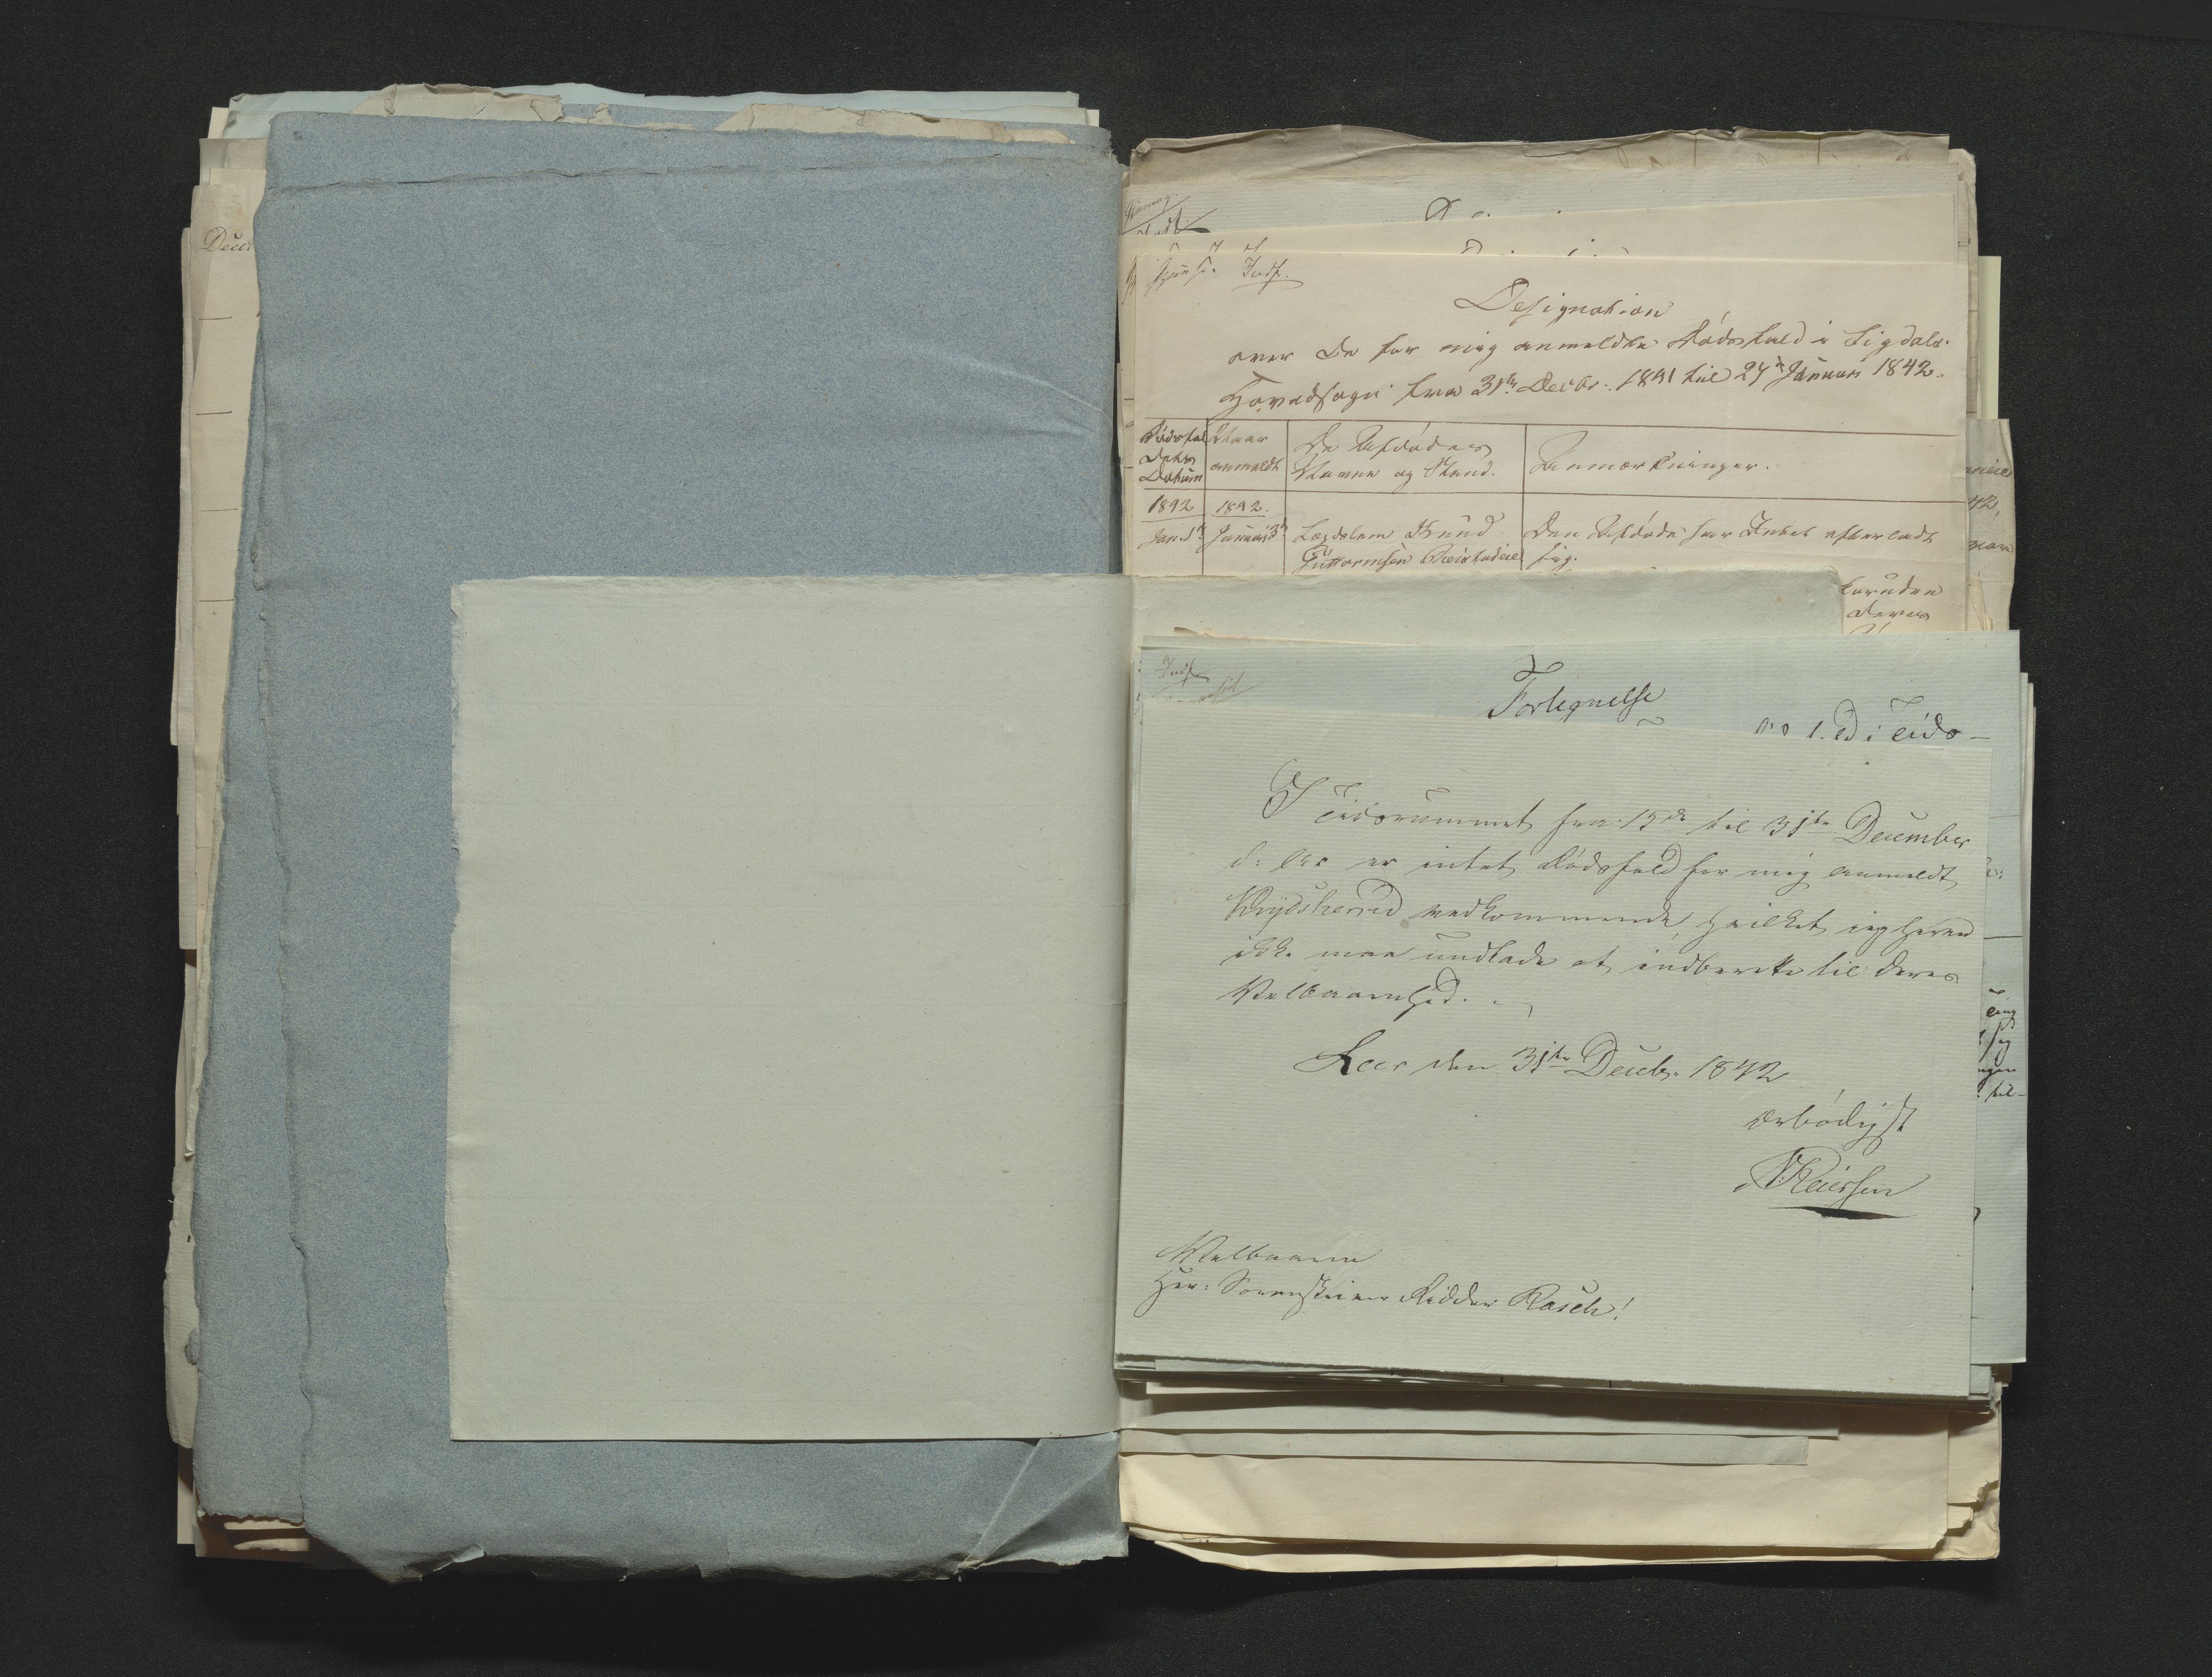 Designation
over de for mig anmeldte Dødsfald i Sigdals
Hovedsogn fra 31te Decbr. 1841 til 27de Januari 1842.
Dødsfaldets Datum
Naar anmeldt
De Afdødes Navne og Stand.
Anmærkninger.
1842
1842.
Jan. 1te
Januari 3de
Lægdslem Knud
Guttormsen
Den Afdøde har Intet efterladt
sig.
foruden
deres
Indf.
Fortegnelse
i Tids-
I Tidsrummet fra 15de til 31te December
d: Aar er intet Dødsfald for mig anmeldt
Krydsherred vedkommende, hvilket jeg herved
ikke maa undlade at indberette til Deres
Velbaarenhed.
den 31te Decbr. 1842
ærbødigst
Reiersen
Velbaarne
Herr Sorenskriver Ridder Rasch!